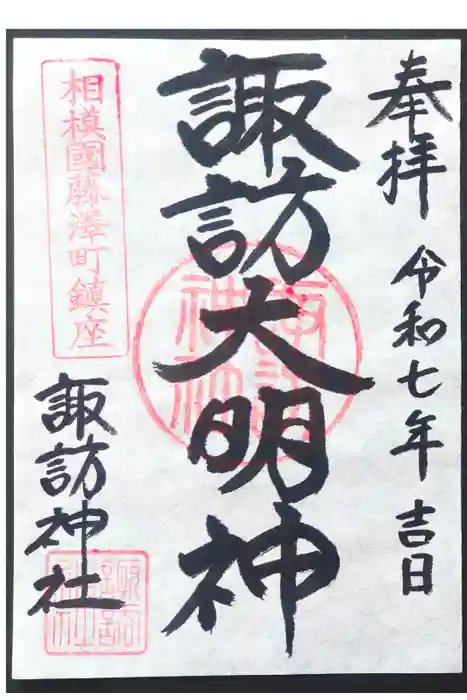 奉拝
令和七年 吉日
諏訪大明神
諏訪神社
相模國藤澤町鎮座
諏訪神社
諏訪神社